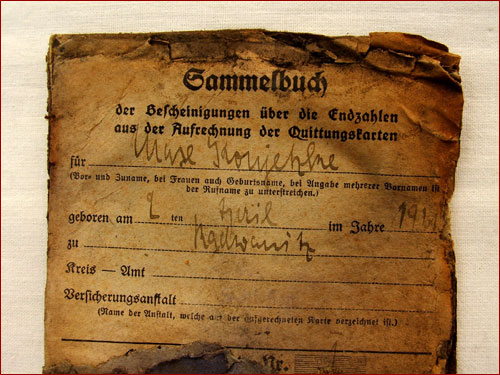 Sammelbuch
der Bescheinigungen über die Endzahlen
aus der Aufrechnung der Quittungskarten
für Max
(Vor- und Zuname, bei Frauen auch Geburtsname, bei Angabe mehrerer Vornamen ist
der Rufname zu unterstreichen.)
geboren am ten April im Jahre
zu
Kreis — Amt
Versicherungsanstalt
(Name der Anstalt, welche auf der aufgerechneten Karte verzeichnet ist.)
Nr.